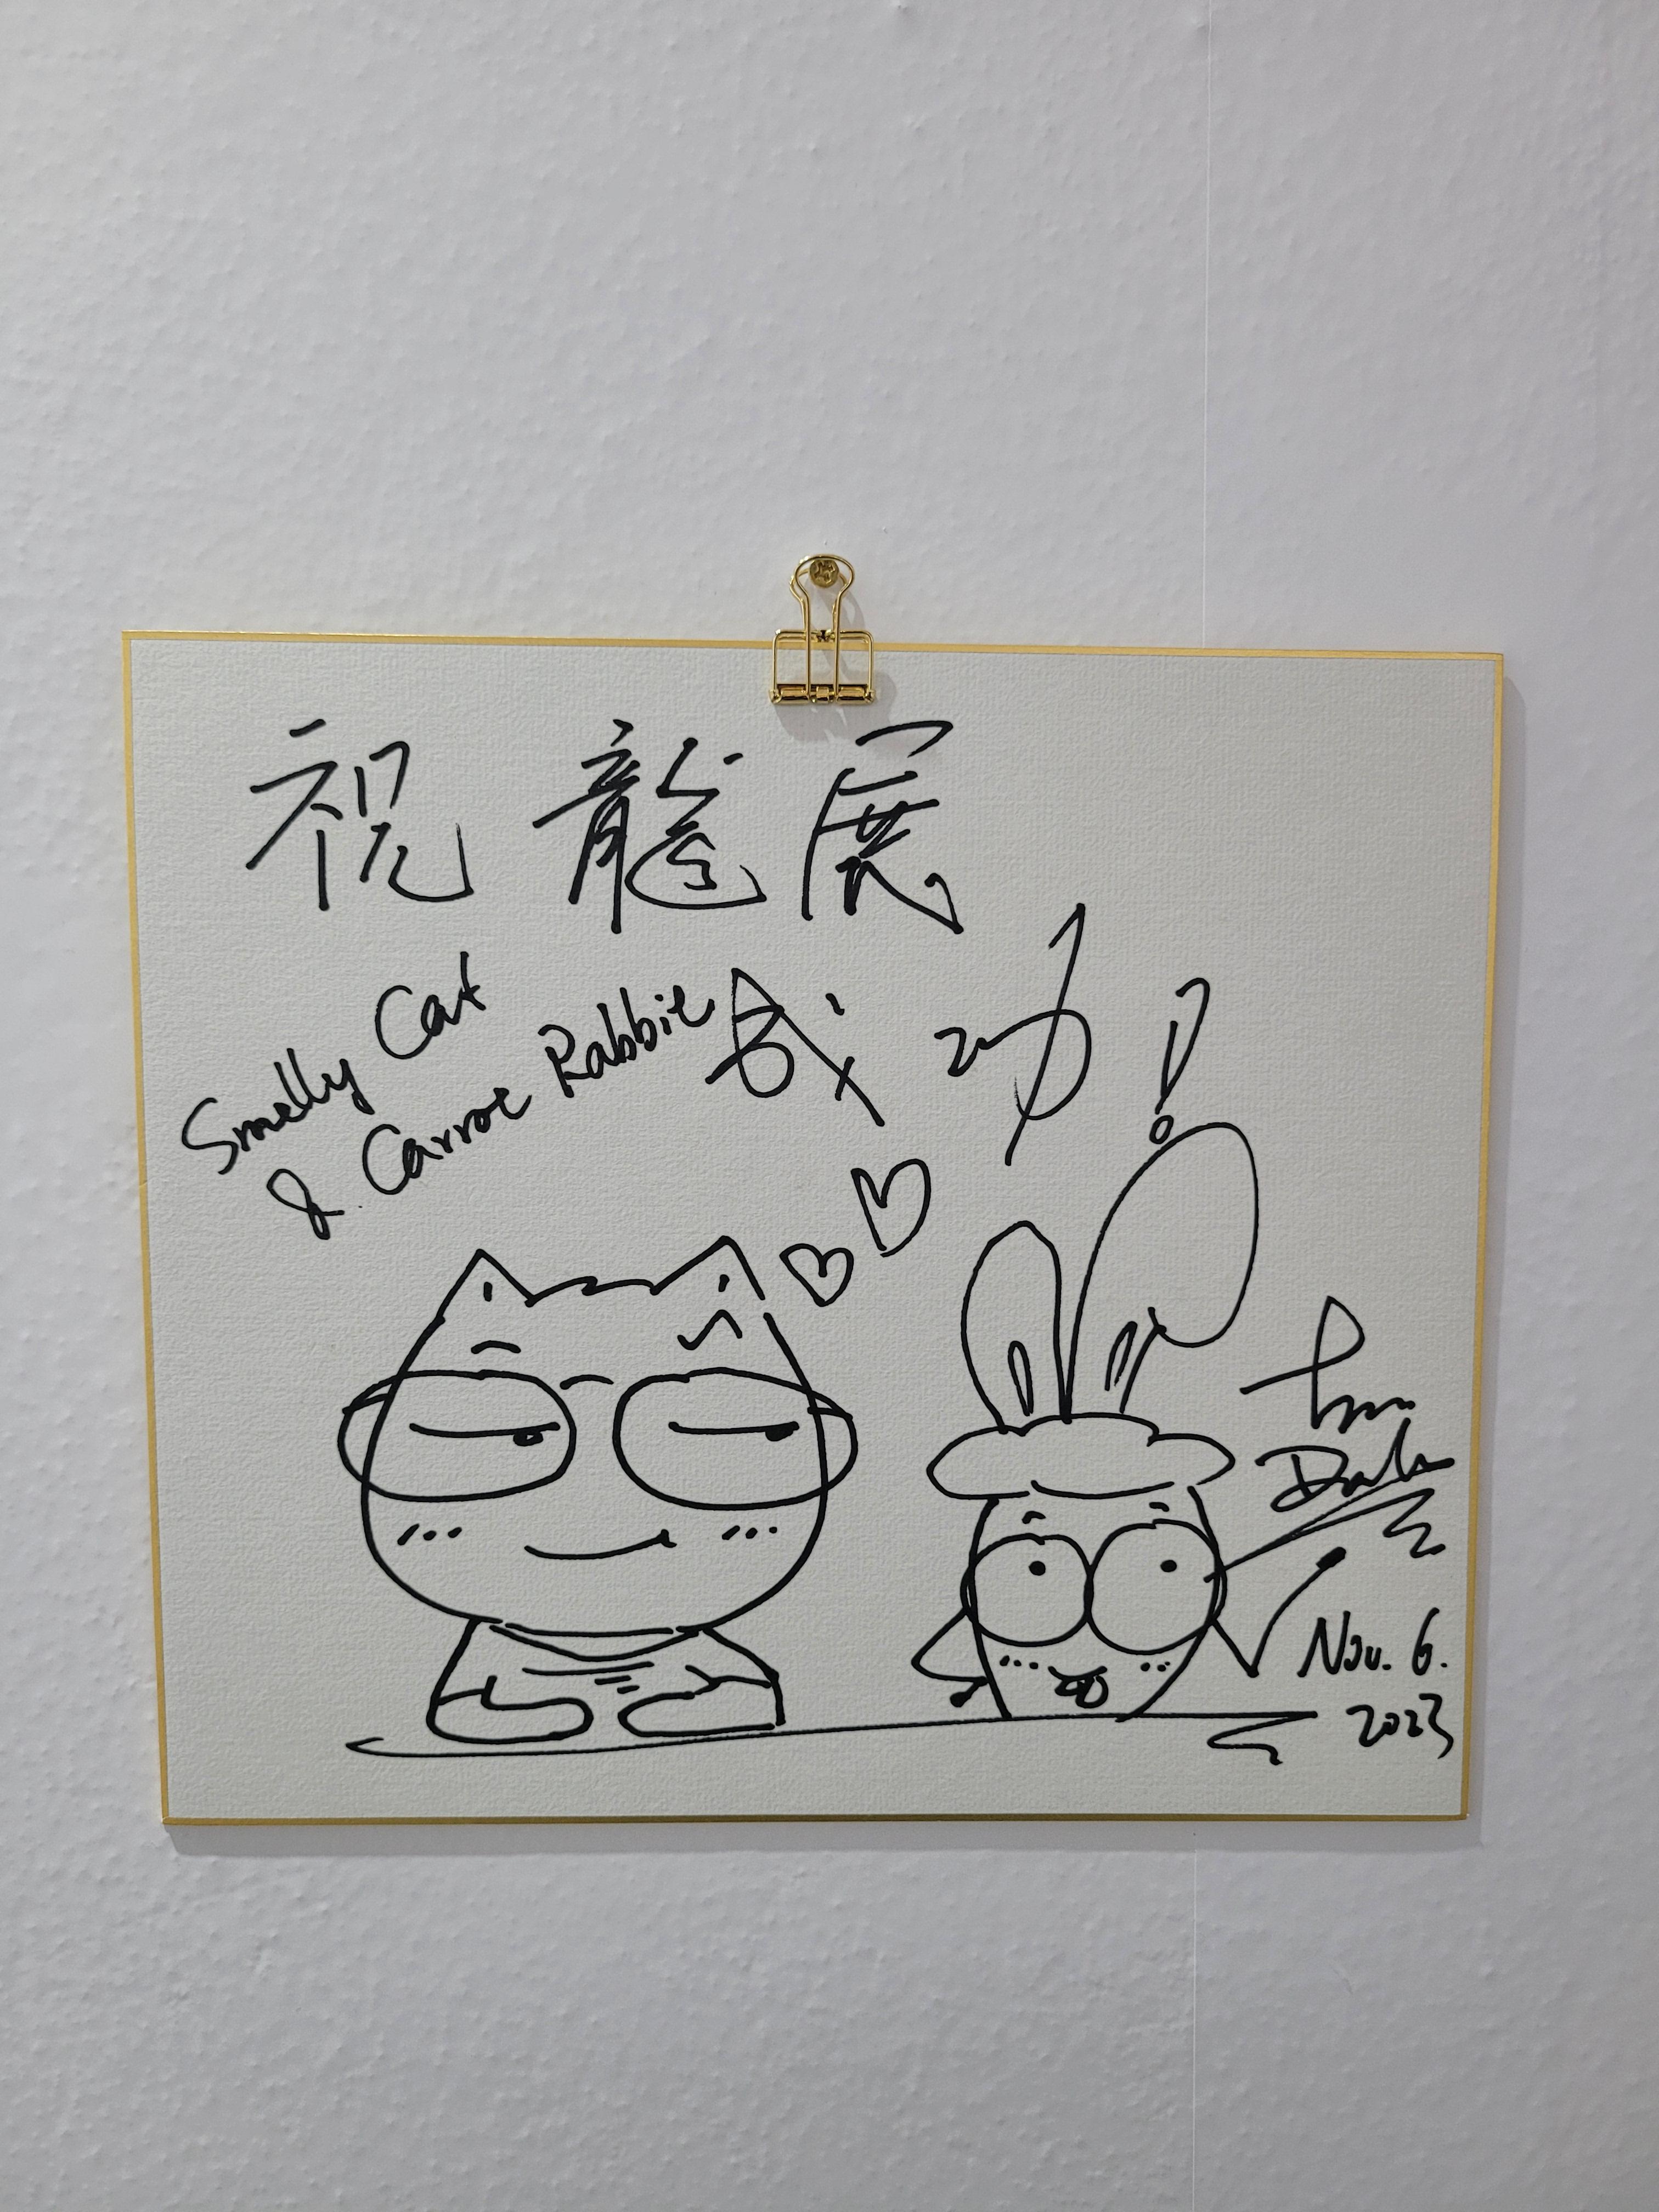 祝龍展
成功!
Smelly Cat
& Carrot Rabbit
Nov. 6.
2023